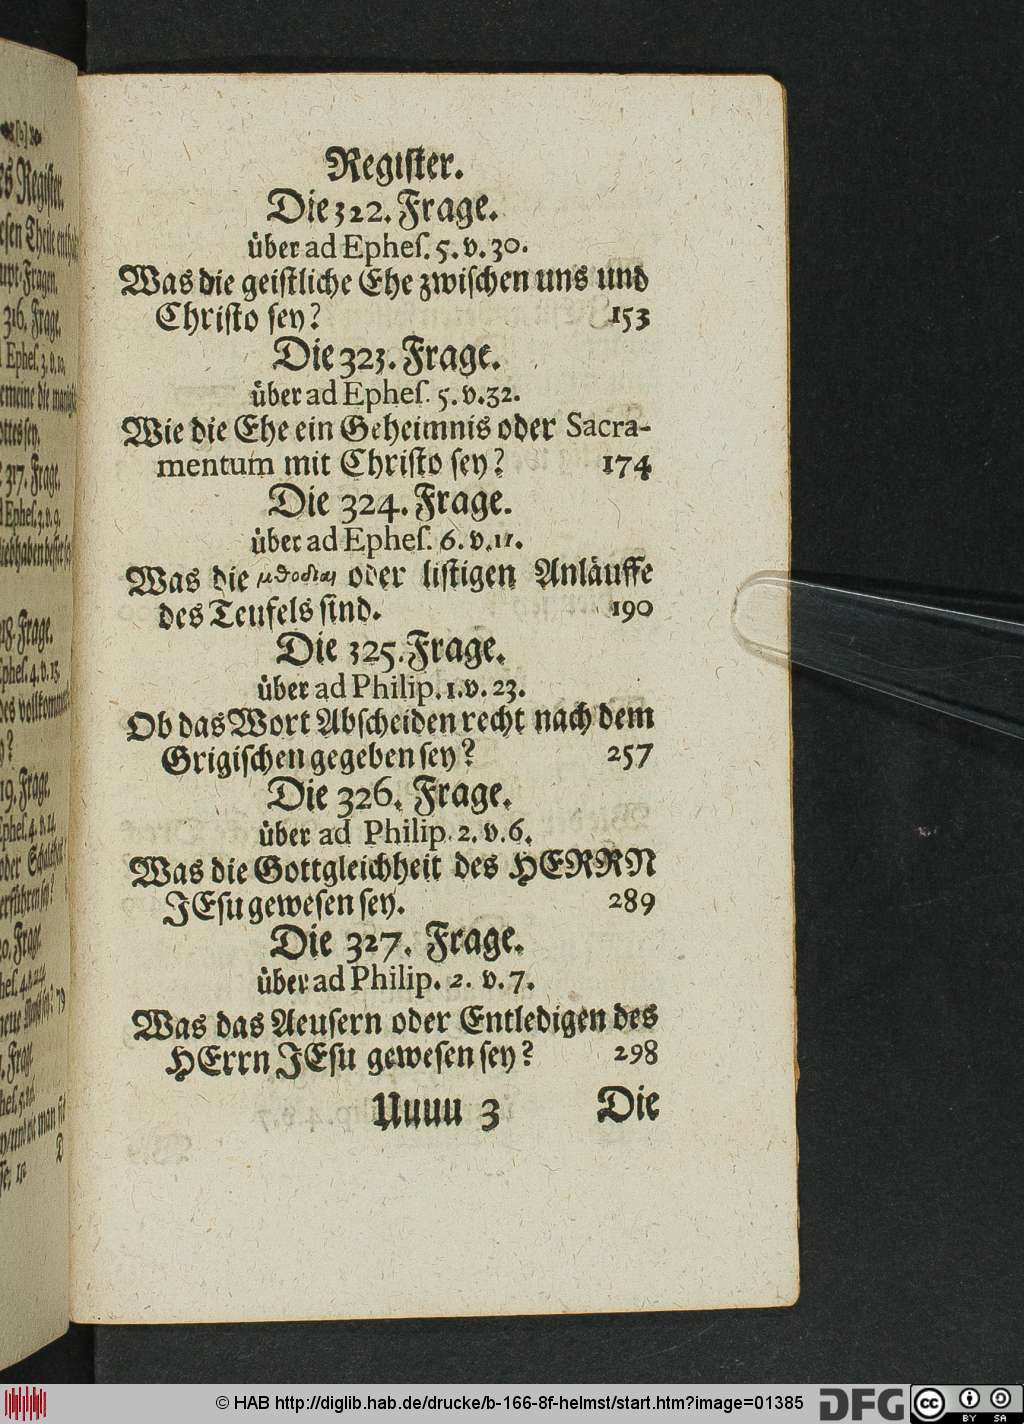 Regiſter.
Die 322. Frage.
über ad Epheſ. 5. v. 30.
Was die geiſtliche Ehe zwiſchen uns und
Chriſto ſey? 153
Die 323. Frage.
über ad Epheſ. 5. v. 32.
Wie die Ehe ein Geheimnis oder Sacra-
mentum mit Chriſto ſey? 174
Die 324. Frage.
über ad Epheſ. 6. v. 11.
Was die oder liſtigen Anläuffe
des Teufels ſind. 190
Die 325. Frage.
über ad Philip. 1. v. 23.
Ob das Wort Abſcheiden recht nach dem
Grigiſchen gegeben ſey? 257
Die 326. Frage.
über ad Philip. 2. v. 6.
Was die Gottgleichheit des HERRN
JEſu geweſen ſey. 289
Die 327. Frage.
über ad Philip. 2. v. 7.
Was das Aeuſern oder Entledigen des
HErrn JEſu geweſen ſey? 298
Uuuu 3 Die
316. Frage.
317. Frage.
© HAB http://diglib.hab.de/drucke/b-166-8f-helmst/start.htm?image=01385
DFG
cc BY SA